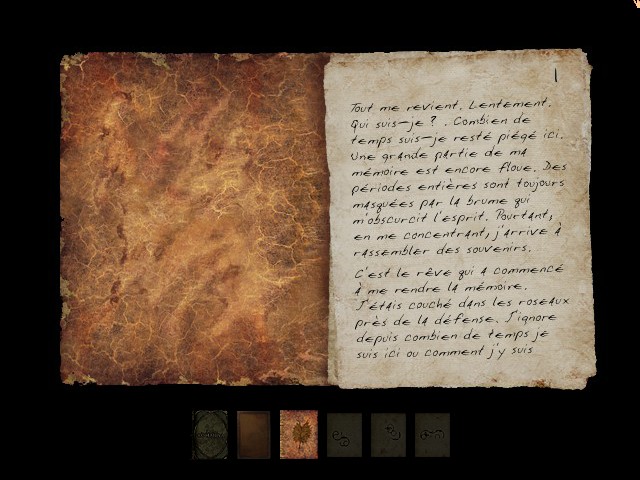 1
Tout me revient. Lentement.
Qui suis-je ? . Combien de
temps suis-je resté piégé ici.
Une grande partie de ma
mémoire est encore floue. Des
périodes entières sont toujours
masquées par la brume qui
m'obscurcit l'esprit. Pourtant,
en me concentrant, j'arrive à
rassembler des souvenirs.
C'est le rêve qui a commencé
à me rendre la mémoire.
J'étais couché dans les roseaux
près de la défense. J'ignore
depuis combien de temps je
suis ici ou comment j'y suis